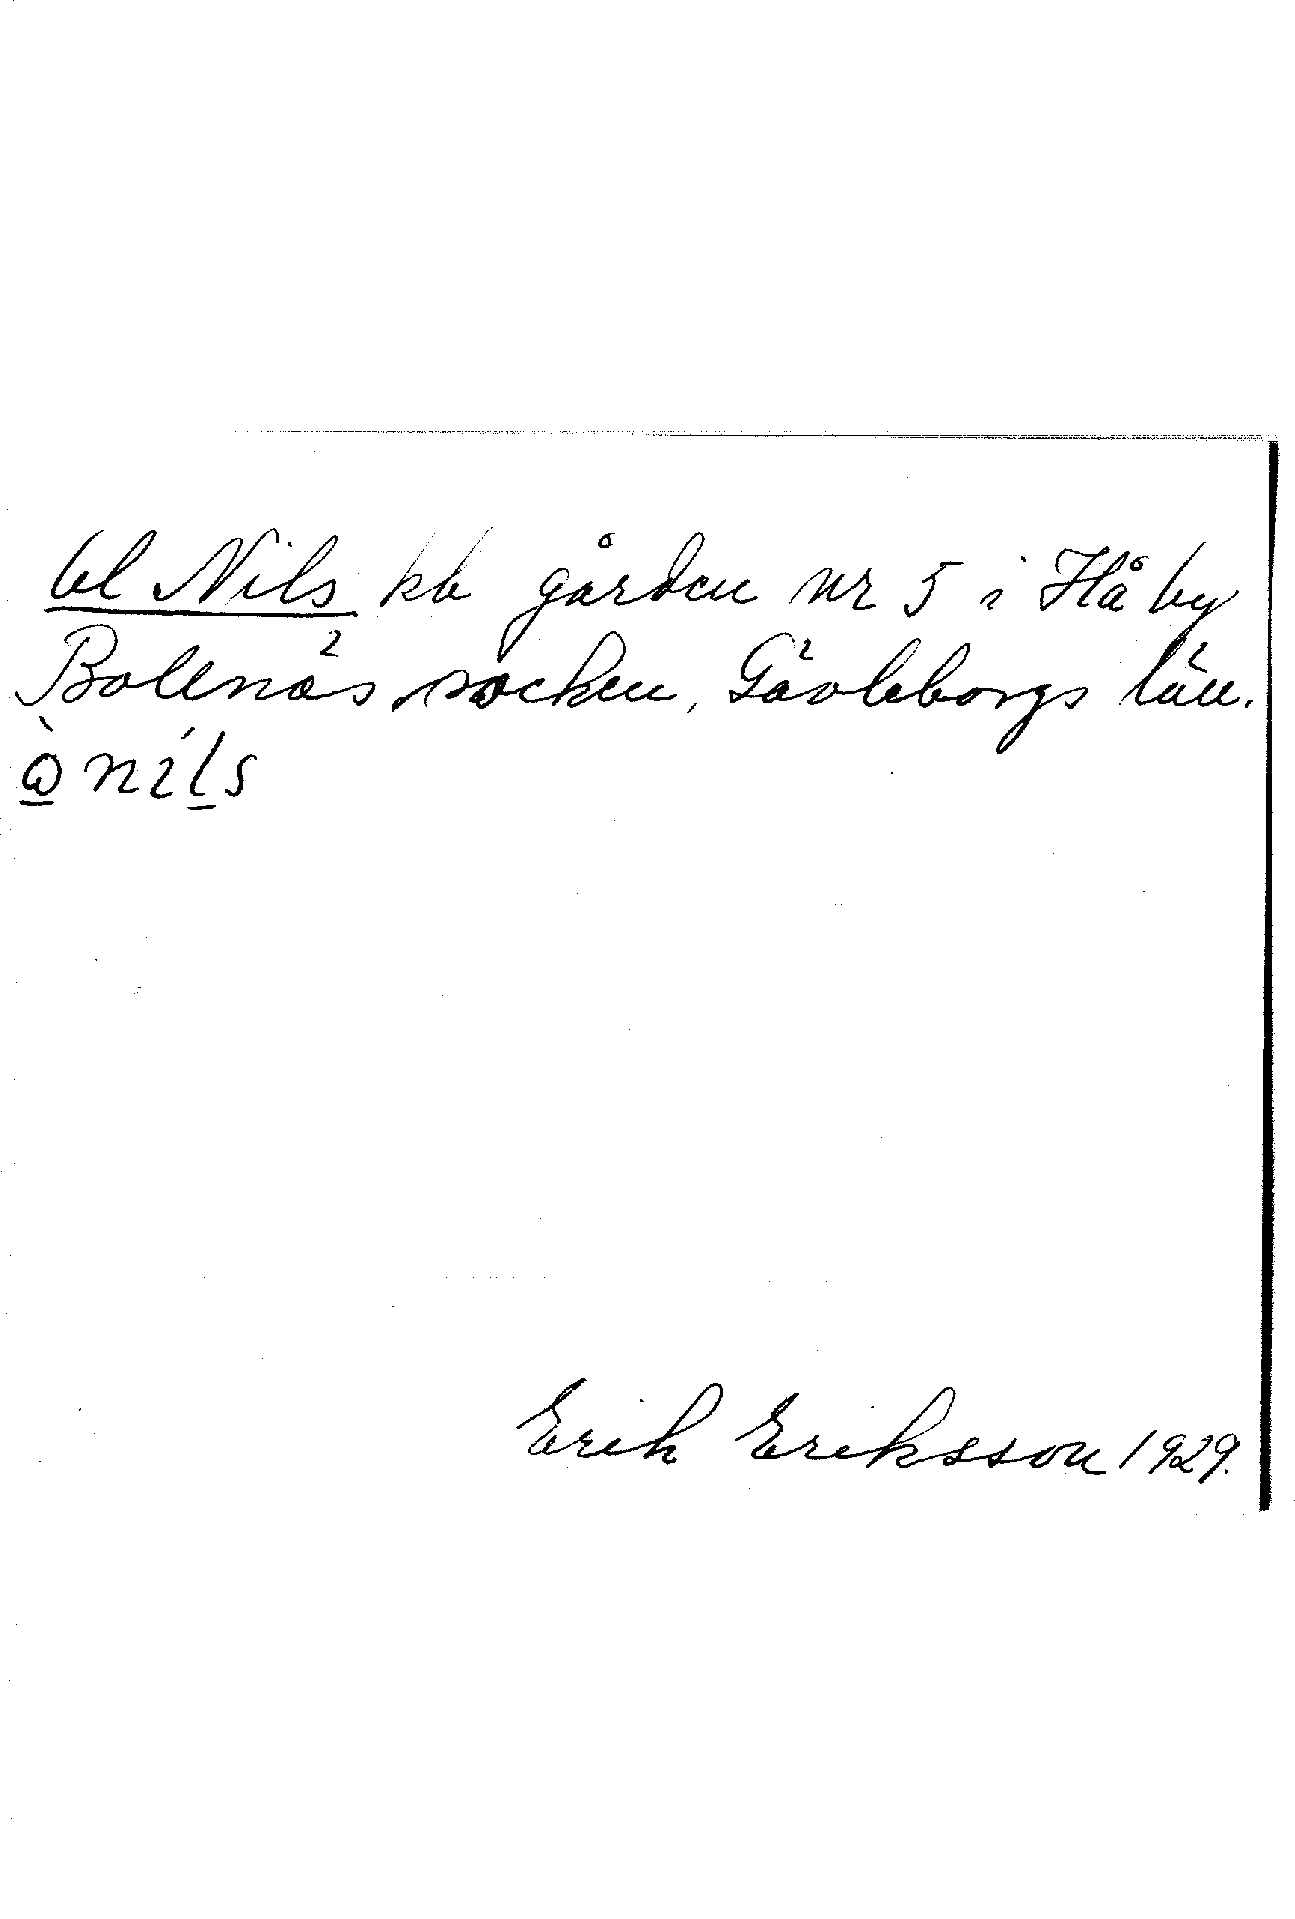 Ol Nils kb gården nr 5 i Hå by
Bollnäs socken, Gävleborgs län.
nils
Erik Eriksson 1929.